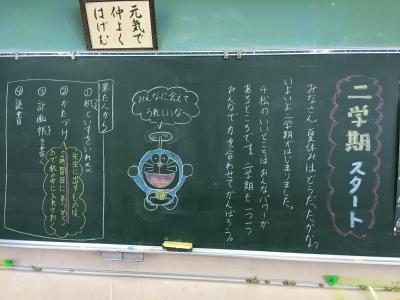 元気で
仲よく
はげむ
二学期
スタート
みなさん、夏休みはどうだったかな。
いよいよ二学期がはじまりました。
4松のいいところは みんなパワーが
あるところです。二学期も一つ一つ
みんなで力を合わせてがんばろう。
みんなに会えて
うれしいな〜
来たんから
①机といすをいれる
②かたづけ
③計画帳
④読書
先生に出すものは